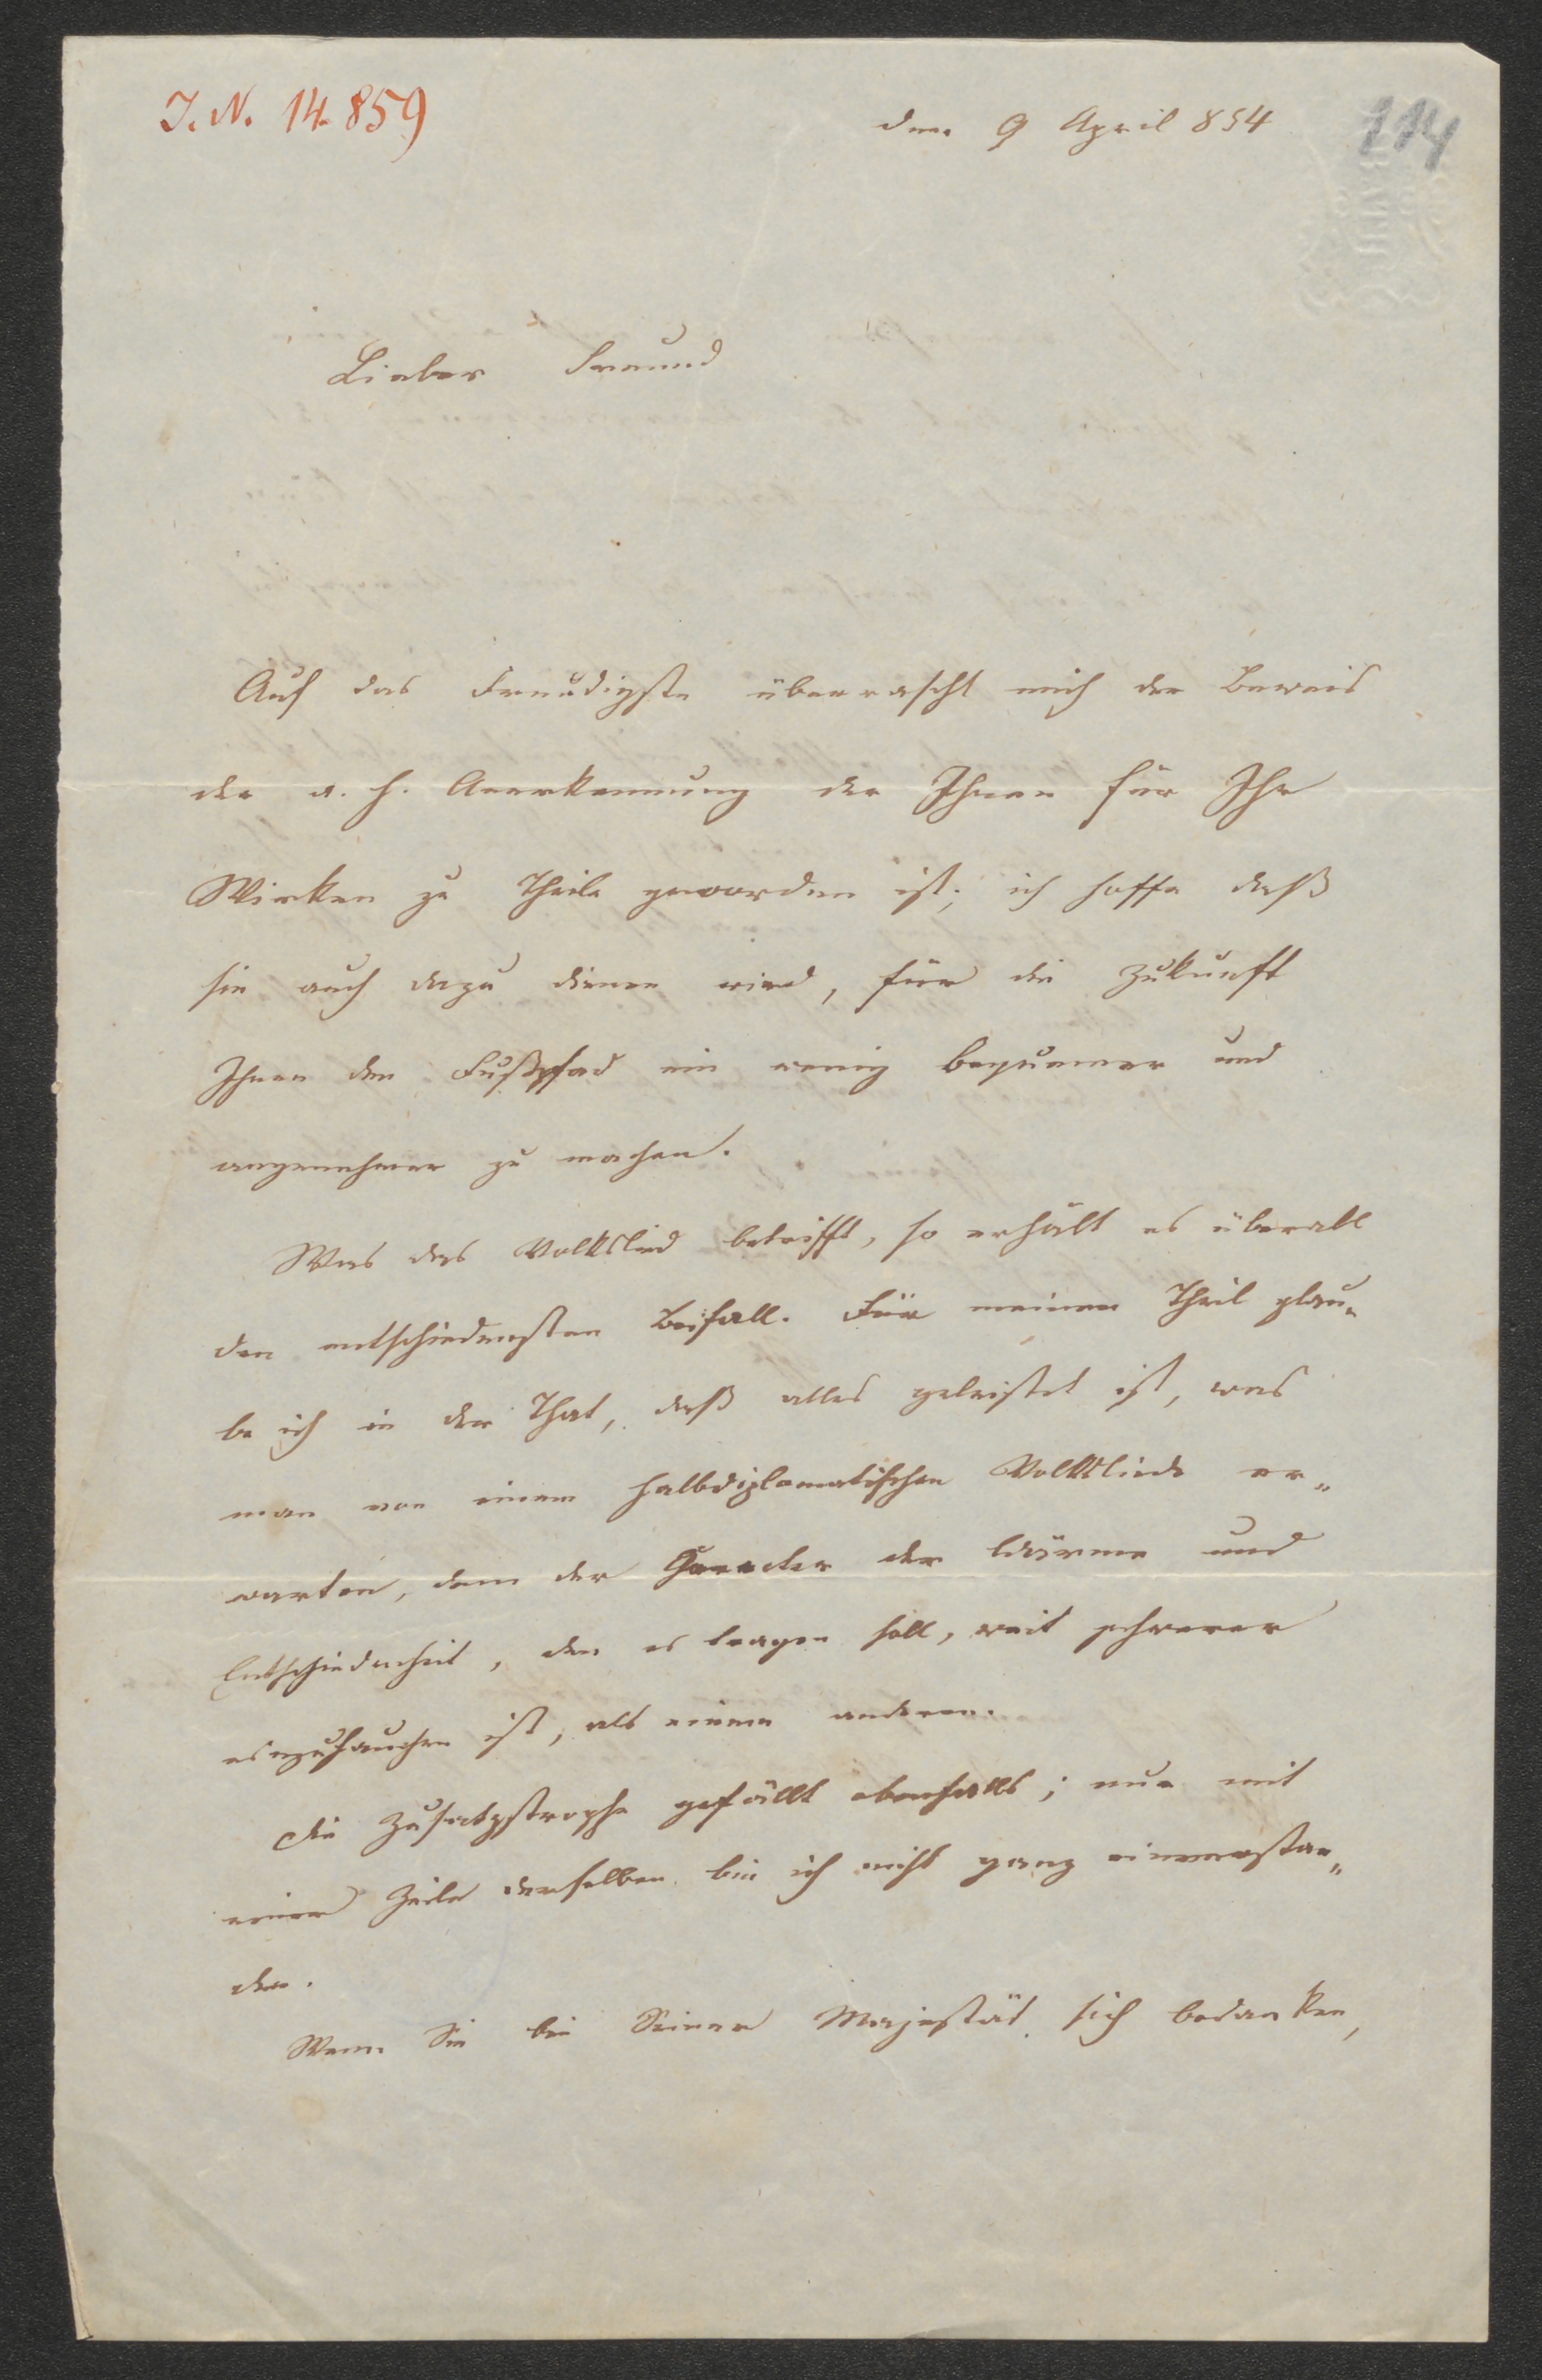 J. N. 14.859
den 9 April 854
114
Lieber Freund
Auf das Freudigste überrascht mich der Beweis
der a. h. Anerkennung der Ihnen für Ihr
Wirken zu Theile geworden ist; ich hoffe daß
sie auch dazu dienen wird, für die Zukunft
Ihnen den Fußpfad ein wenig bequemer und
angenehmer zu machen.
Was das Volkslied betrifft, so erhält es überall
den entschiedensten Beifall. Für meinen Theil glau-
be ich in der That, daß alles geleistet ist, was
man von einem halbdiplomatischen Volksliede er-
warten, dem der der Wärme und
Entschiedenheit, den es tragen soll, weit schwerer
einzuhauchen ist, als einem anderen.
Die Zusatzstrophe gefällt ebenfalls; nur mit
einer Zeile derselben bin ich nicht ganz einverstan-
den.
Wenn Sie bei Seiner Majestät sich bedanken,